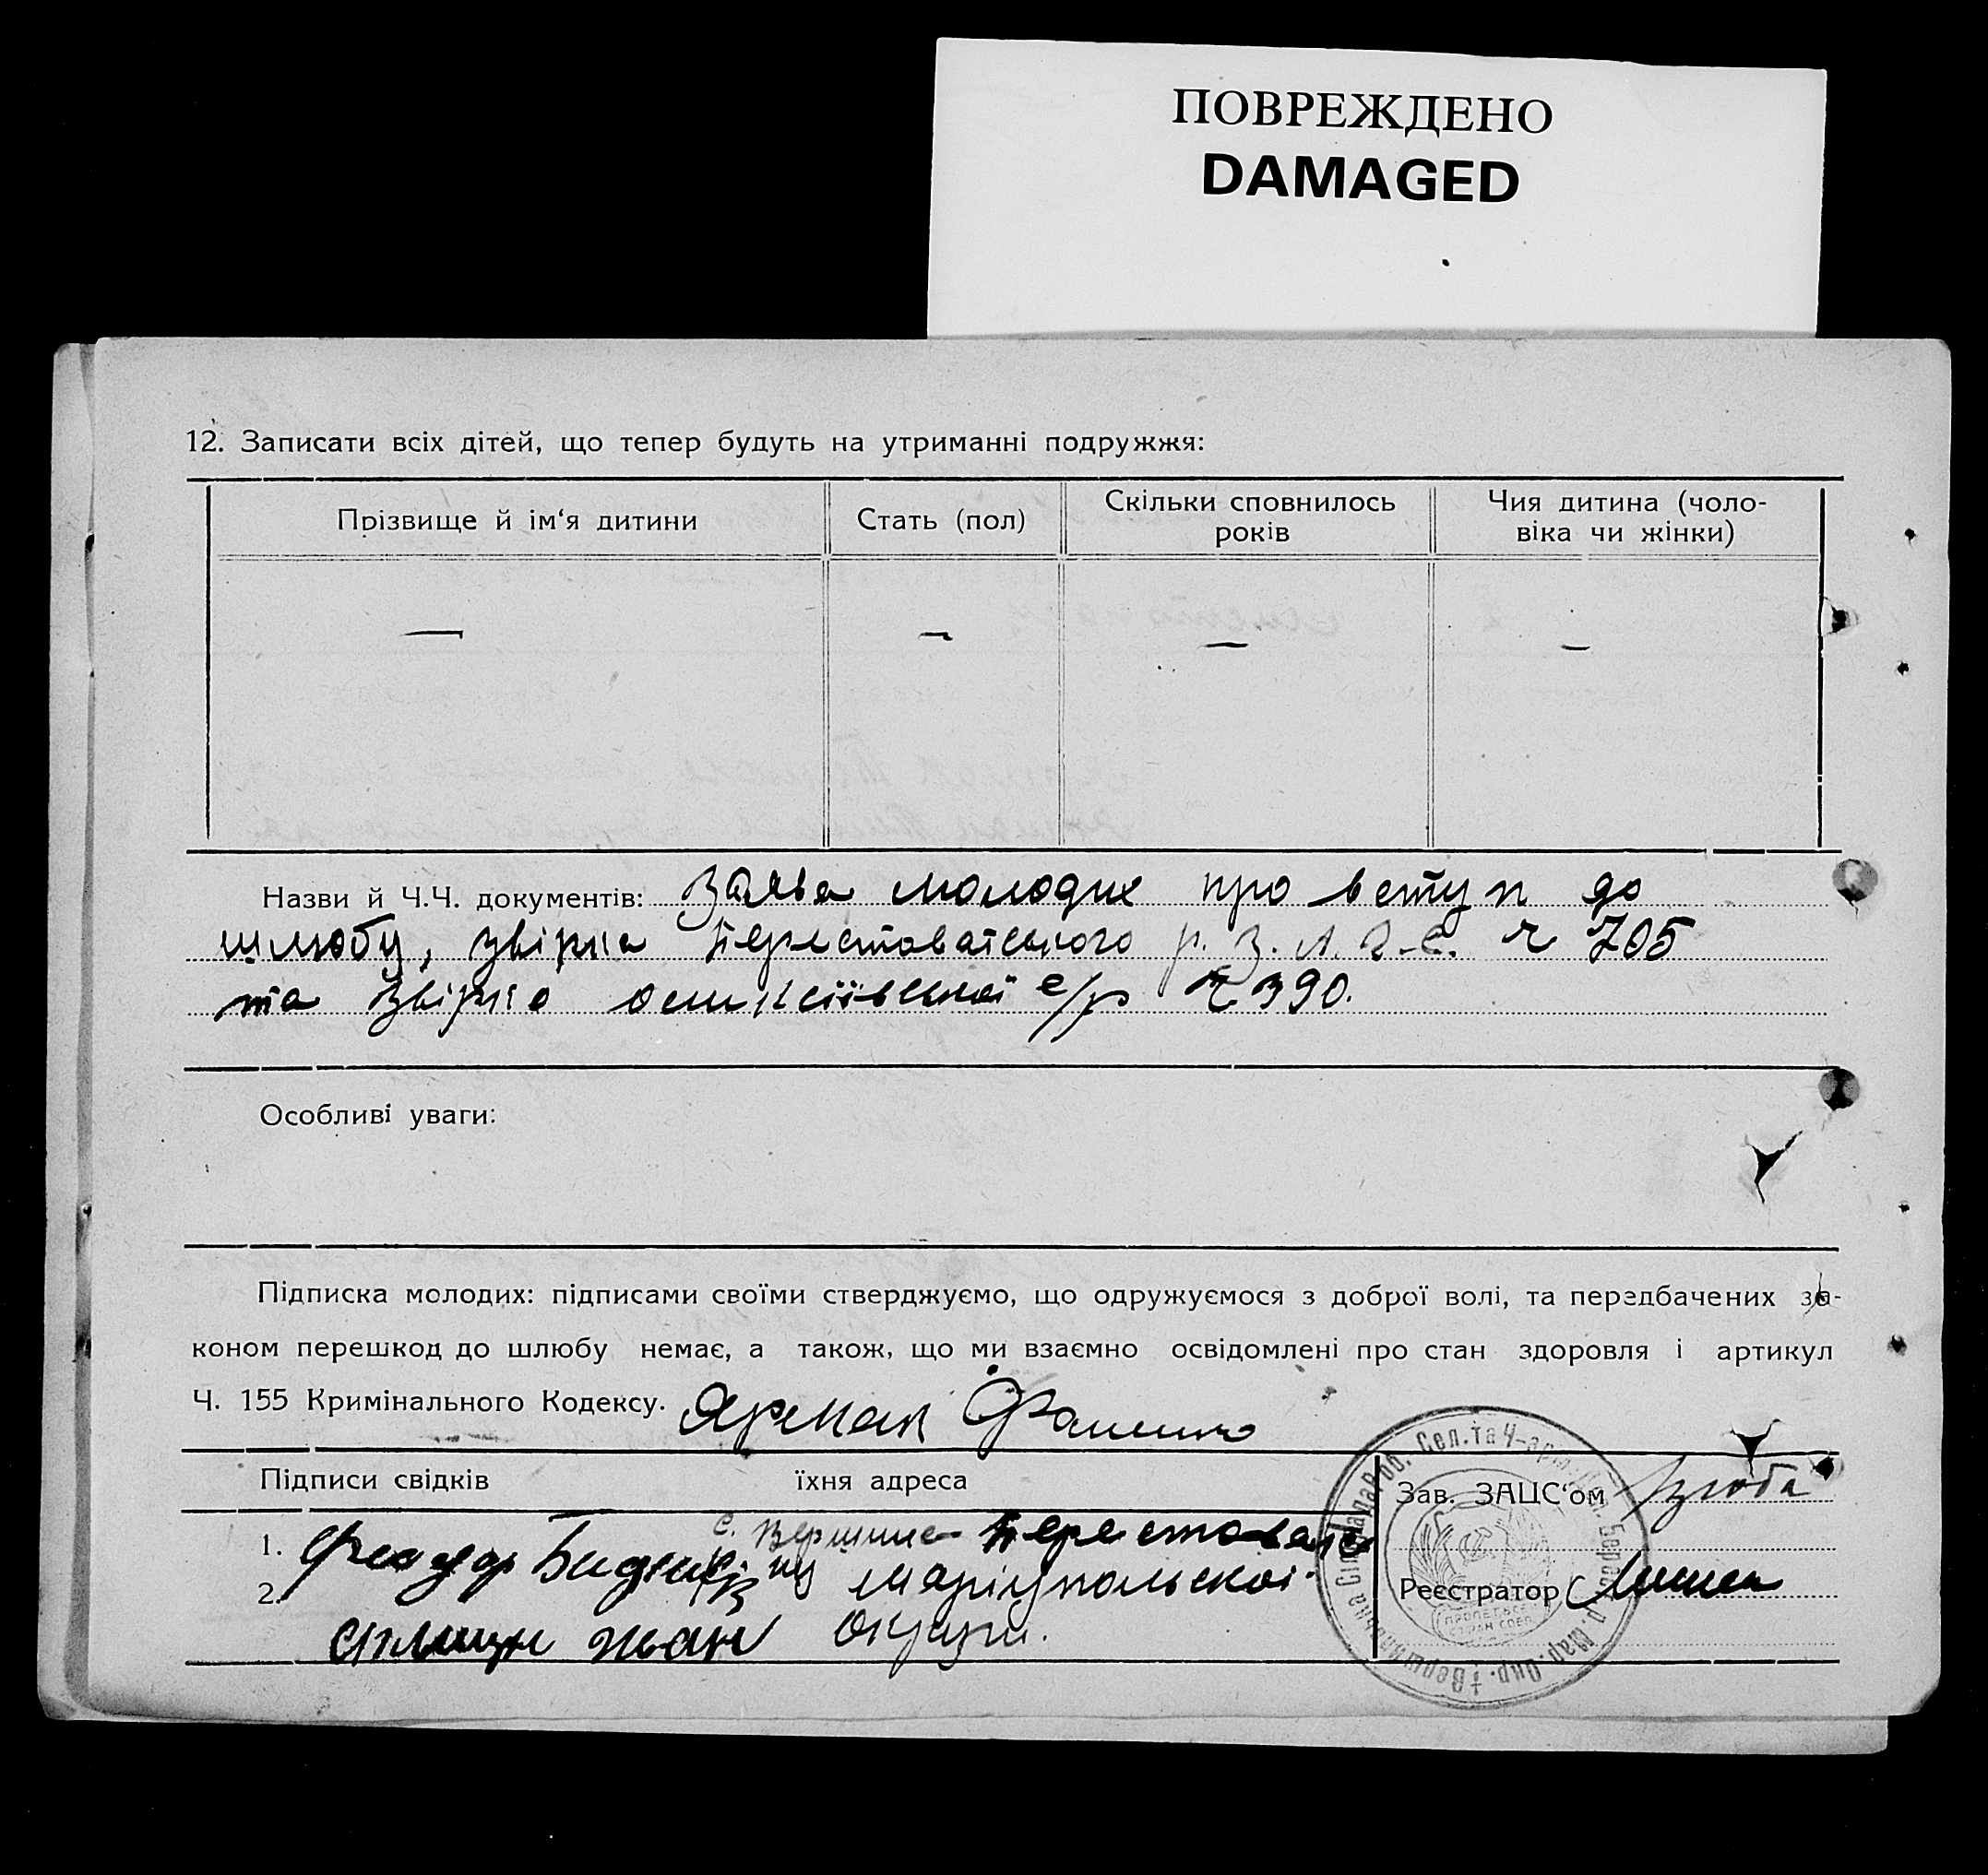 ПОВРЕЖДЕНО
DAMAGED
12. Записати всіх дітей, що тепер будуть на утриманні подружжя:
Прізвище й ім‘я дитини
Стать (пол)
Скільки сповнилось
років
Чия дитина (чоло-
віка чи жінки)
— — — —
Назви й Ч.Ч. документів: Заява молодих про вступ до
шлюбу, звірка р. З. А. Г-С. ч 705
та звірка с/р ч 390.
Особливі уваги:
Підписка молодих: підписами своїми стверджуємо, що одружуємося з доброї волі, та передбачених за-
коном перешкод до шлюбу немає, а також, що ми взаємно освідомлені про стан здоровля і артикул
Ч. 155 Кримінального Кодексу. Ярмак
Підписи свідків їхня адреса
Зав. ЗАЦС‘ом
1. с.
2. Маріупольскої
округи.
Реєстратор